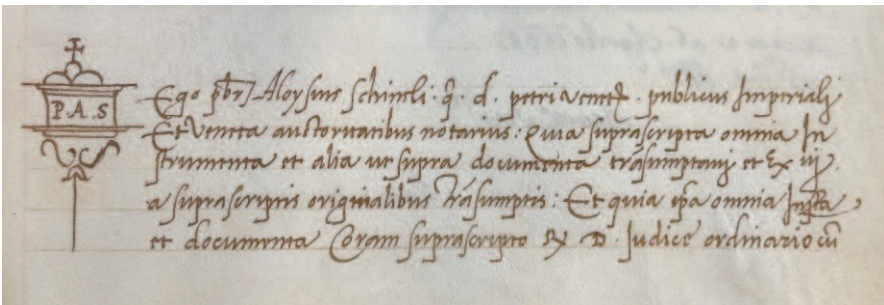 P. A. S
Ego pbr Aloysius Schinelli. q. d. petri venet. publicus Imperiali
Et Veneta auctoritatibus notarius: Quia suprascripta omnia In
strumenta et alia ut supra documenta trãsumptavj et Ex iij
a suprascriptis originalibus trãsumptis: Et quia ipa omnia
et documenta Coram suprascripto R D. Judice ordinario cũ